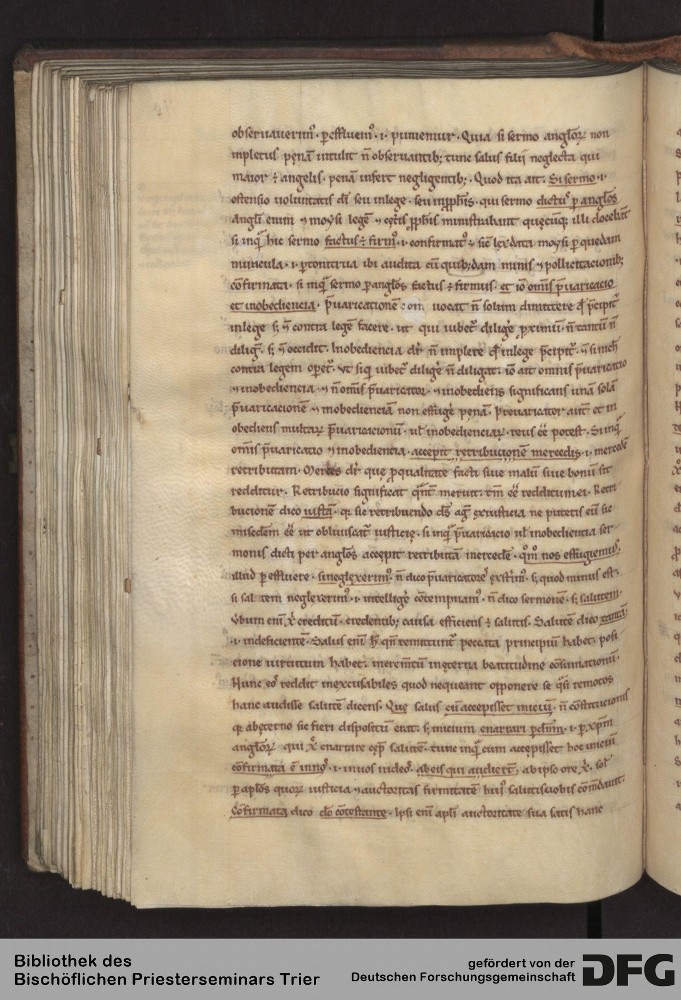 obseruauerim᷒ · ꝑeffluem᷒ · i · puniemur · Quia si sermo angłoꝝ non
impletus penā intulit n̄ obseruantib; tunc salus filii neglecta qui
maior ē angelis · penā infert negligentib; · Quod ita ait · Si sermo · i ·
ostensio uoluntatis dī seu inlege · seu inꝓphīs · qui sermo dictus ꝑ angłos
angli enim ⁊ moysi legē ⁊ cęt̄is ꝓphis ministrabant
si inq̄ hic sermo factus ē firm᷒ · i · confirmat᷒ ē sic lex data moysi ꝑ quędam
miracula · i · ibi audita cū quib;dam minis ⁊ pollicitacionib;
cōfirmata · si inq̄ sermo ꝑ angłos factus ē firmus · et iō omīs p̄uaricacio
et inobediencia · p̄uaricationē uocat n̄ solum dimittere qđ p̄cipit᷒
inlege s; ⁊ contra legē facere · ut qui iubet᷒ diligē ꝓximū · n̄ tantū n̄
diliḡ · s; ⁊ occidit · Inobediencia dr̄ n̄ implere qđ inlege p̄cipit᷒ ·
contra legem opet᷒ · Vt siq̄ iubet᷒ diligē n̄ diligat · iō ait omnis p̄uaricatio
⁊ inobediencia · ⁊ n̄ omīs p̄uaricator · ⁊ inobediens significans unā solā
p̄uaricacionē ⁊ inobedienciā non effugē penā · Preuaricator aut̄ et in
obediens multaꝝ p̄uaricacionū · uł inobedienciaꝝ · reus eē potest · Si inq̄
omīs p̄uaricatio ⁊ inobediencia · accepit retribucionē mercedis · i · mercedē
retributam · Merces dr̄ quę ꝓ qualitate facti siue malū siue bonū sit
redditur · Retribucio significat qn̄t meruit · tm̄ eē redditum ei · Retri
bucionē dico iustā · qr̄ sic retribuendo ds̄ aḡ exiusticia ne putetis eū sic
misedem eē ut obliuiscat᷒ iusticię · si inq̄ p̄uaricacio uł inobediencia ser
monis dicti per angłos accepit retributā mercedē · qm̄ nos effugiemus ·
illud ꝑeffluere · si neglexerim᷒ · n̄ dico p̄uaricatores s; quod minus est ·
si sal tem neglexerim᷒ · i · intelligē cōtempnam᷒ · n̄ dico sermonē · s; salutem ·
Verbum enī x̄ creditū · credentib; causa efficiens ē salutis · Salutē dico tantā ·
i · indeficientē · Salus enī h̄ qn̄ remittunt᷒ peccata principiū habet · posi
cione uirtutum habet · incremtū inęterna beatitudine cōsummationū ·
Hunc eos reddit inexcusabiles quod nequeant opponere se q̄si remotos
hanc audisse salutē dicens · Quę salus cū accepisset iniciū · n̄ constitucionis
qr̄ abęterno sic fieri dispositū erat · s; inicium enarrari ꝑ dn̄m · i · ꝑ xp̄m
angłoꝝ qui x̄ enarrare cep̄ salutē · tunc inq̄ cum accepisset hoc iniciū
cōfirmata ē innos · i · inuos iudeos · abeis qui audierēt · ab ipso ore x̄ · sct̄
ꝑ apłos quoꝝ iusticia ⁊ auctoritas firmitatē hui᷒ salutis uobis cōmdauit ·
Cōfirmata dico dō cōtestante · Ipsi enī apłi auctoritate sua satis hanc
Bibliothek des
Bischöflichen Priesterseminars Trier
gefördert von der
Deutschen Forschungsgemeinschaft
DFG